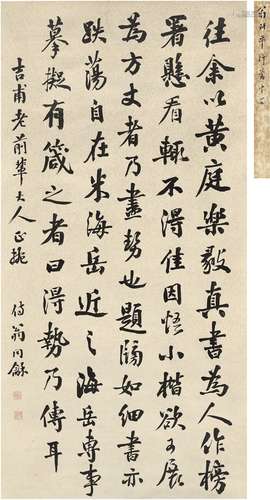 往余以黃庭樂毅真書為人作榜
署懸看輒不得佳因悟小楷欲可展
為方丈者乃盡勢也題牓如細書亦
跌蕩自在米海岳近之海岳專事
摹擬有箴之者曰得勢乃傳耳
吉甫老前輩大人正擬
侍翁同龢